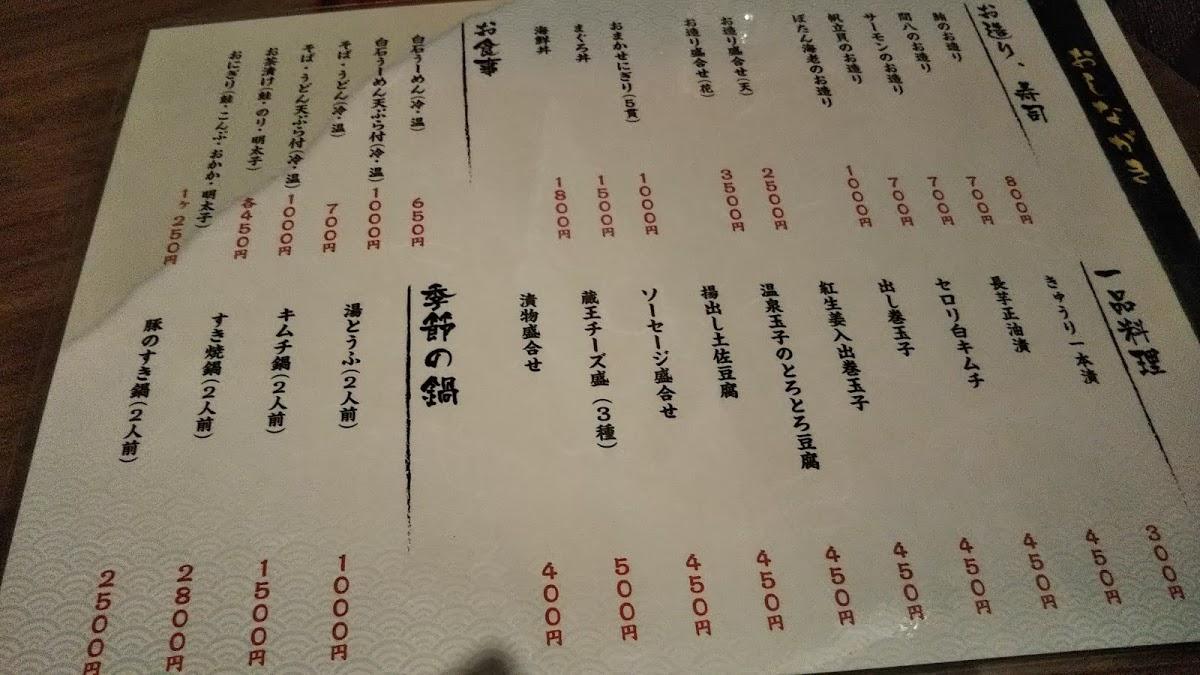 おしながき
お造り、寿司
鮪のお造り 800円
間八のお造り 700円
サーモンのお造り 700円
帆立貝のお造り 700円
ぼたん海老のお造り 1000円
お造り盛合せ(天) 2500円
お造り盛合せ(花) 3500円
おまかせにぎり(5貫) 1000円
まぐろ丼 1500円
海鮮丼 1800円
お食事
白石うーめん(冷・温) 650円
白石うーめん天ぷら付(冷・温) 1000円
そば・うどん(冷・温) 700円
そば・うどん天ぷら付(冷・温) 1000円
お茶漬け(鮭・のり・明太子) 各450円
おにぎり(鮭・こんぶ・おかか・明太子) 1ヶ250円
一品料理
きゅうり一本漬 300円
長芋正油漬 450円
セロリ白キムチ 450円
出し巻玉子 450円
紅生姜入出巻玉子 450円
温泉玉子のとろとろ豆腐 450円
揚出し土佐豆腐 450円
ソーセージ盛合せ 450円
蔵王チーズ盛(3種) 500円
漬物盛合せ 400円
季節の鍋
湯とうふ(2人前) 1000円
キムチ鍋(2人前) 1500円
すき焼鍋(2人前) 2800円
豚のすき鍋(2人前) 2500円